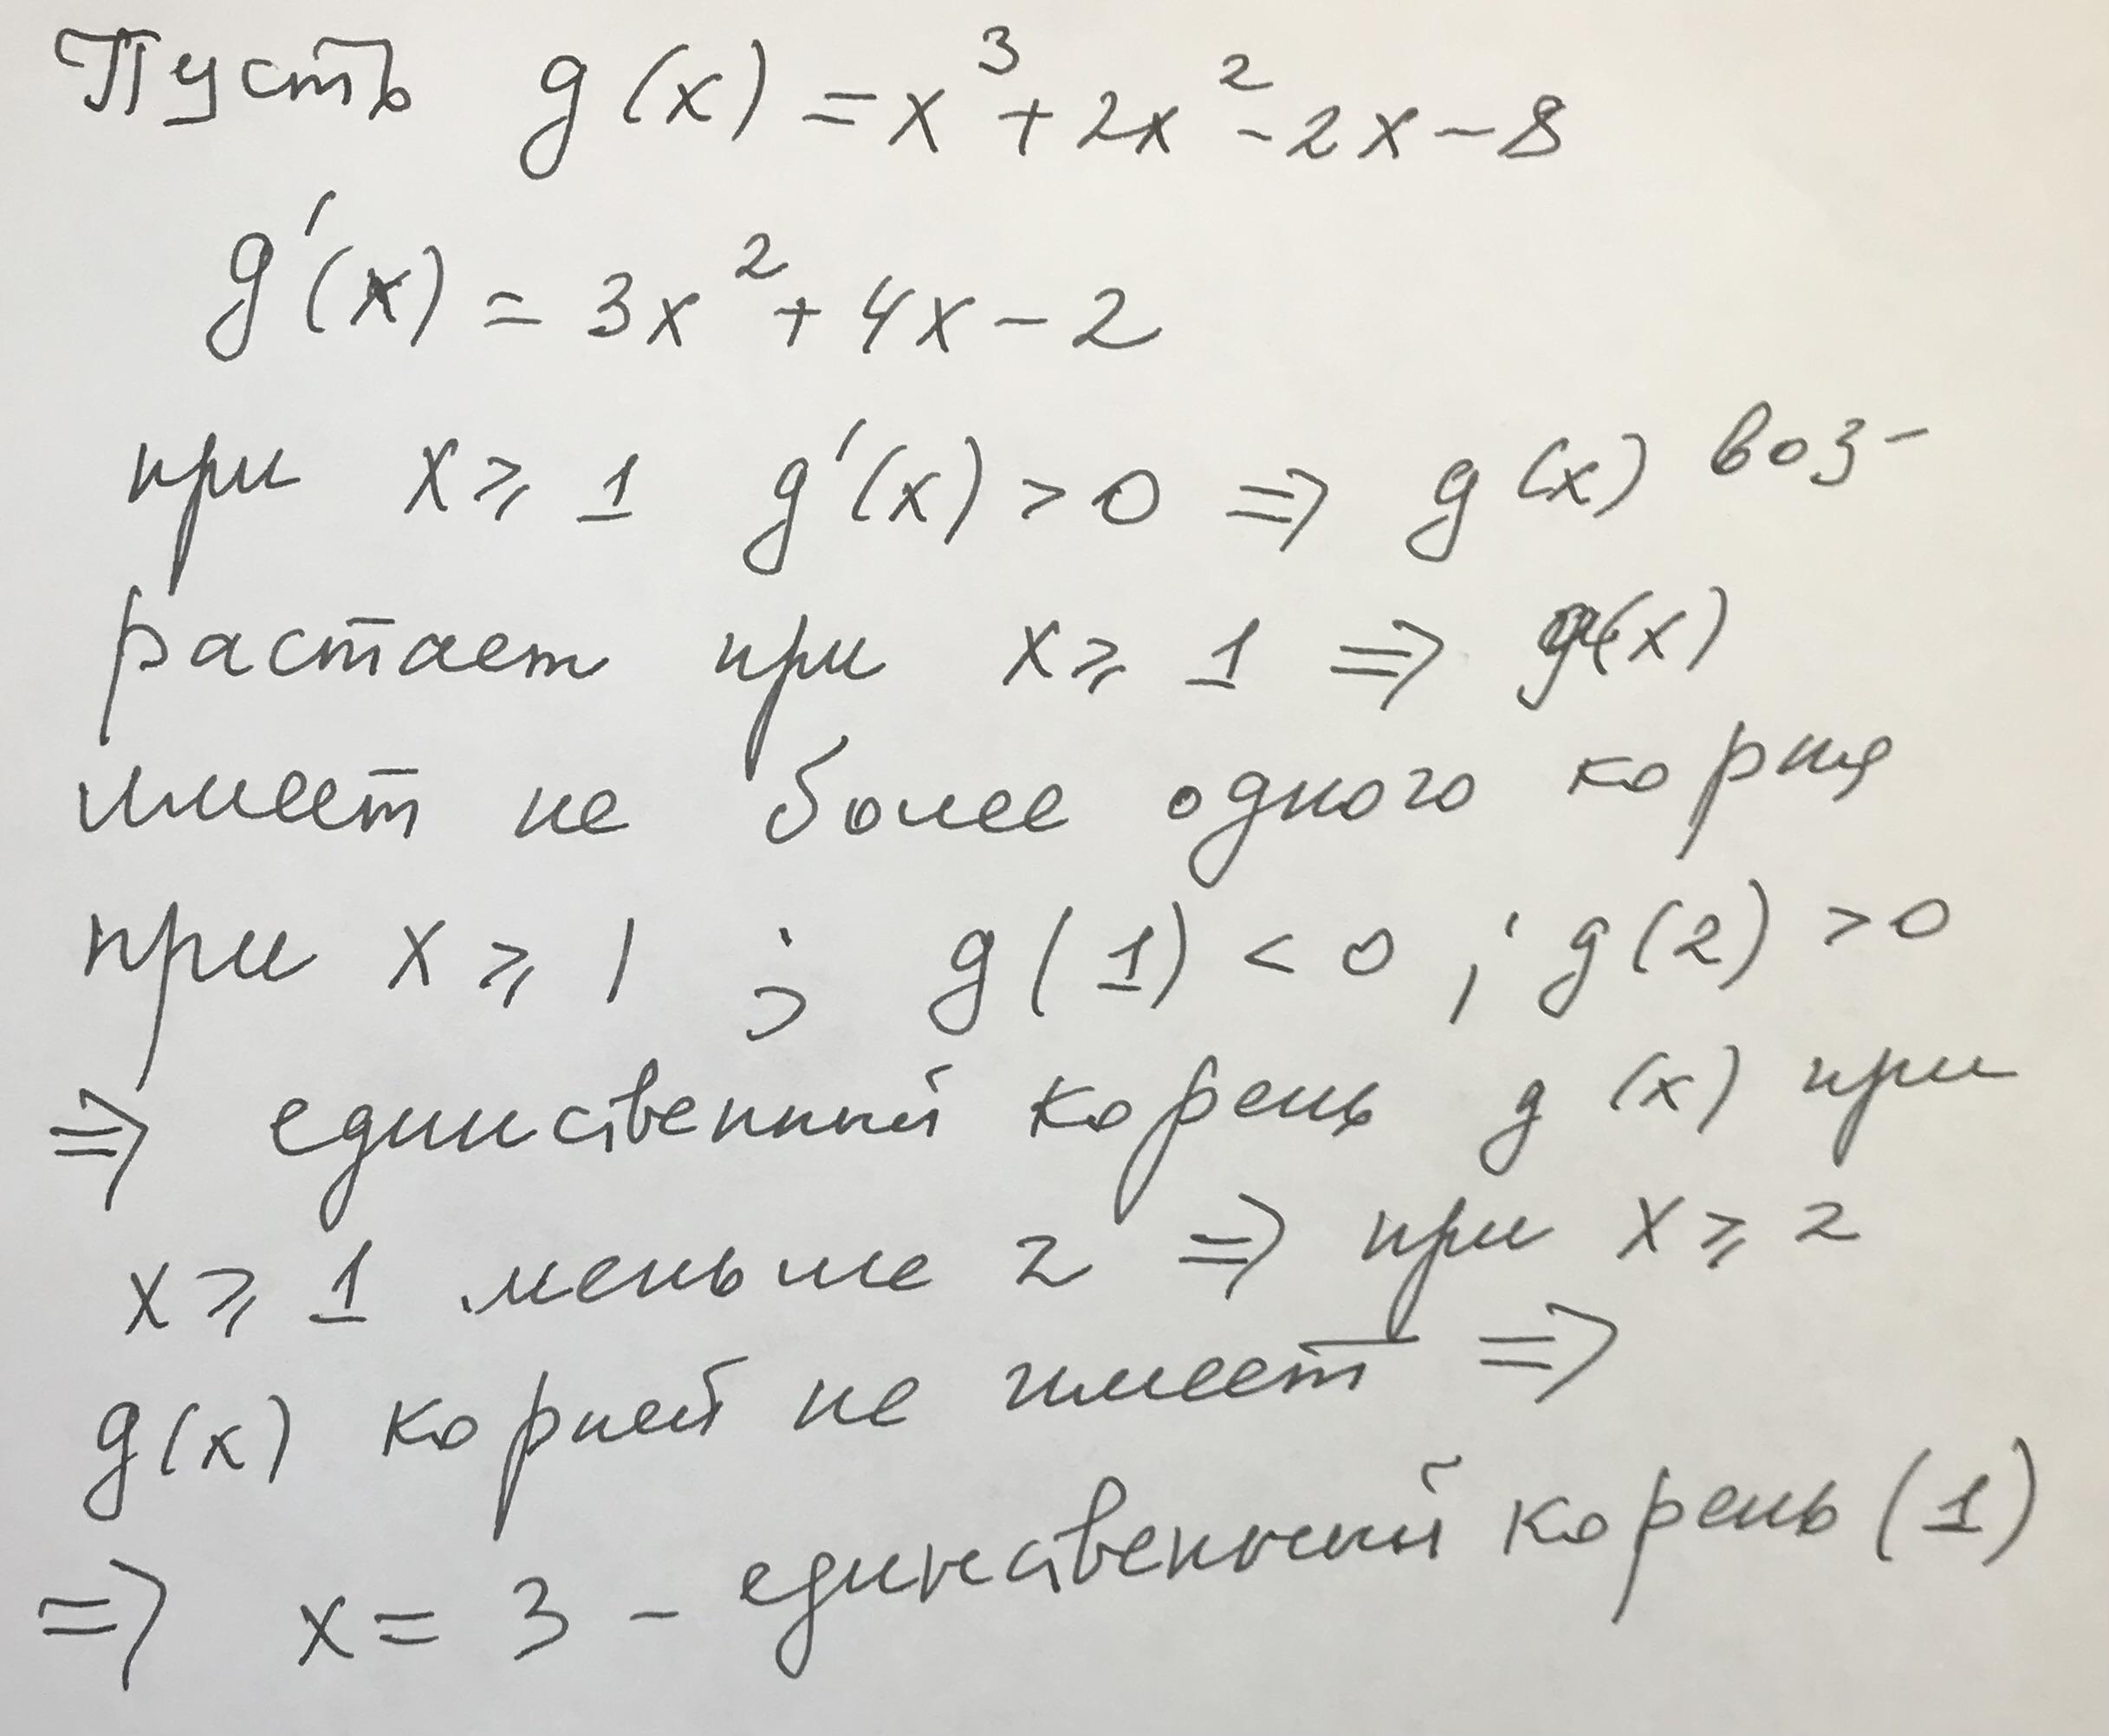 Пусть g(x) = x³ + 2x² - 2x - 8
g'(x) = 3x² + 4x - 2
при x ⩾ 1 g'(x) > 0 => g(x) воз-
растает при x ⩾ 1 => g(x)
имеет не более одного корня
при x ⩾ 1 ; g(1) < 0 ; g(2) > 0
=> единственный корень g(x) при
x ⩾ 1 меньше 2 => при x ⩾ 2
g(x) корней не имеет =>
=> x = 3 - единственный корень (1)